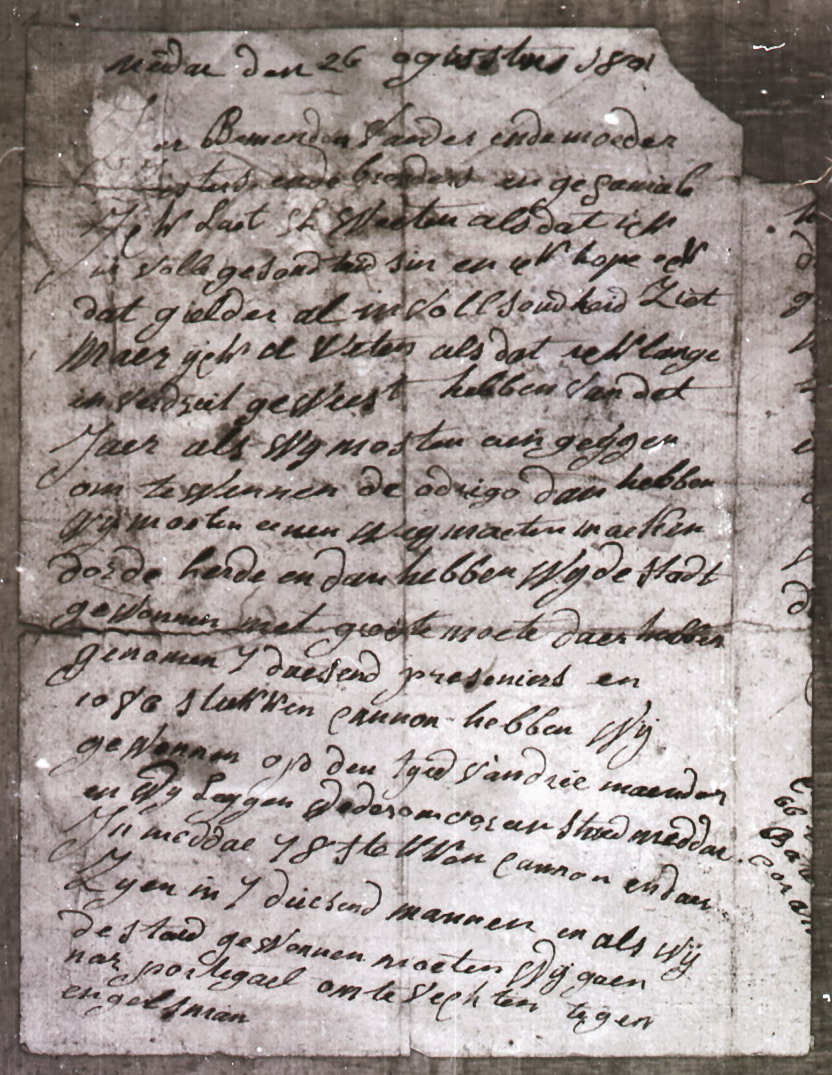 den 26 ogusstus 18
Bemenden Vander ende moeder
susters ende broeders en
Laet Weeten als dat ick
in volle gesondheid sin en ick hope ock
dat gielder al in Vollsoudheid Ziet
Maer ijck Weten als dat ick lange
in Verdriet geWeest hebben Van det
Jaer als Wy mosten aengeggen
om te Wennen de odrigo dan hebben
Wy mosten eenen Weg maeten maeken
dor de herde en dan hebben Wy de stadt
geWonnen met groote moete daer hebben
genomen 7 duesend presoniers en
1080 stukken cannon hebben Wij
geWonnen op den tyed Van drie maenden
en Wy Leggen een stad meddae
In meddae 78 stukken cannon en daer
Zyen in 7 duesend mannen en als Wij
de stad geWonnen moeten Wij gaen
nar portegael om te Vechten tegen
engelsman